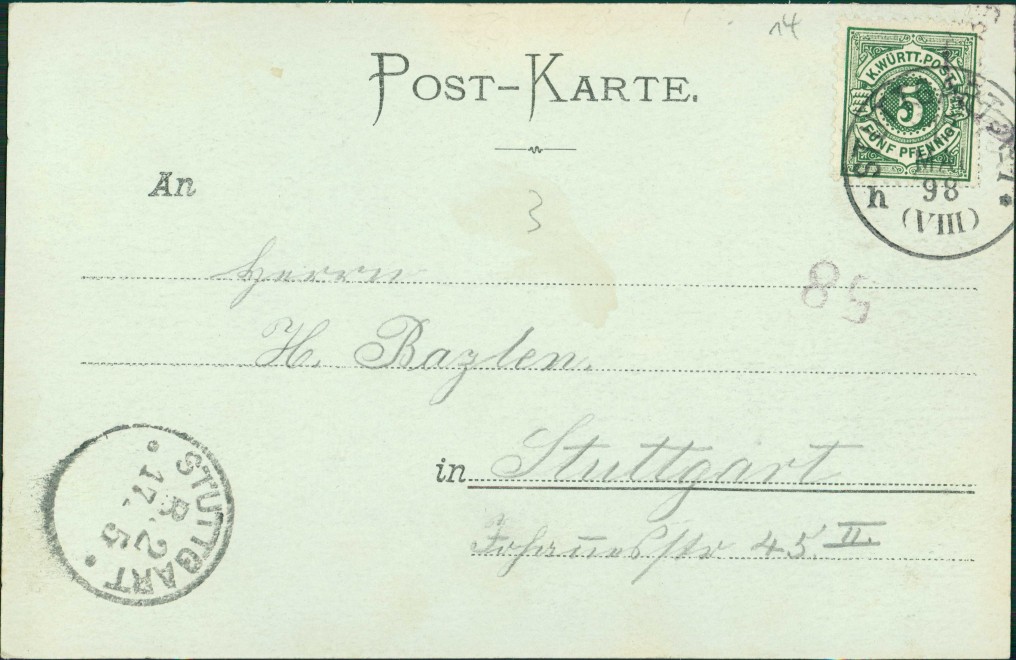 14
POST-KARTE.
K. WÜRTT. POST
5
FÜNF PFENNIG
MAI
98
h
(VIII)
An
3
Herrn
85
H. Bazlen.
in Stuttgart
Johannesstr 45. II.
STUTTGART
B. 2
17. 5